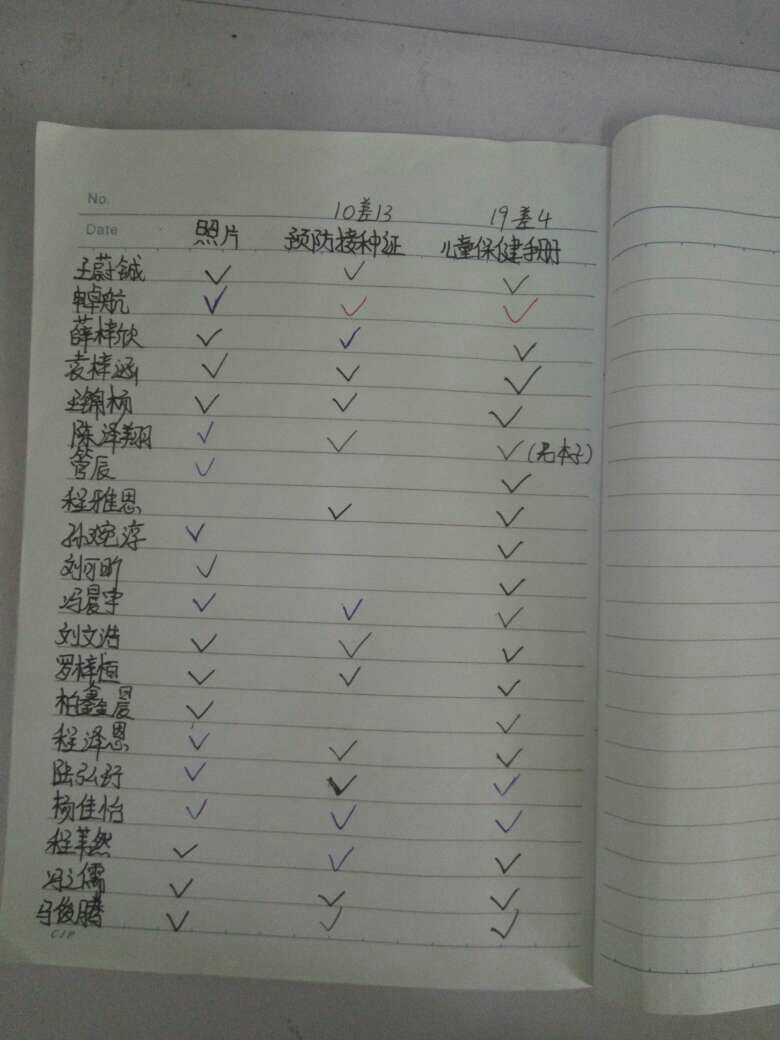 No.
10差13 19差4
Date 照片 预防接种证 儿童保健手册
王蔚铖 ✓ ✓ ✓
申卓航 ✓ ✓ ✓
薛梓欣 ✓ ✓ ✓
袁梓涵 ✓ ✓ ✓
王锦杨 ✓ ✓ ✓
陈泽翔 ✓ ✓ ✓(无本子)
管辰 ✓ ✓
程雅恩 ✓ ✓
孙婉淳 ✓ ✓
刘可昕 ✓ ✓
冯晨宇 ✓ ✓ ✓
刘文浩 ✓ ✓ ✓
罗梓恒 ✓ ✓ ✓
柏鑫晨 ✓ ✓
程泽恩 ✓ ✓ ✓
陆弘 ✓ ✓ ✓
杨佳怡 ✓ ✓ ✓
程苇然 ✓ ✓ ✓
冯之儒 ✓ ✓ ✓
马俊腾 ✓ ✓ ✓